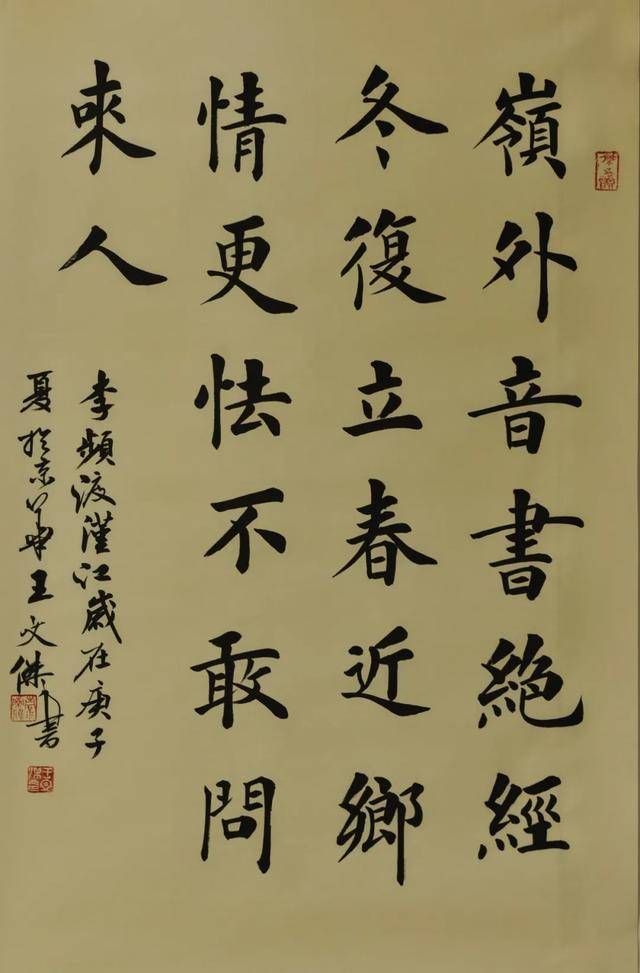 嶺外音書絕經
冬復立春近鄉
情更怯不敢問
來人
李頻渡漢江歲在庚子
夏於京華王文傑書